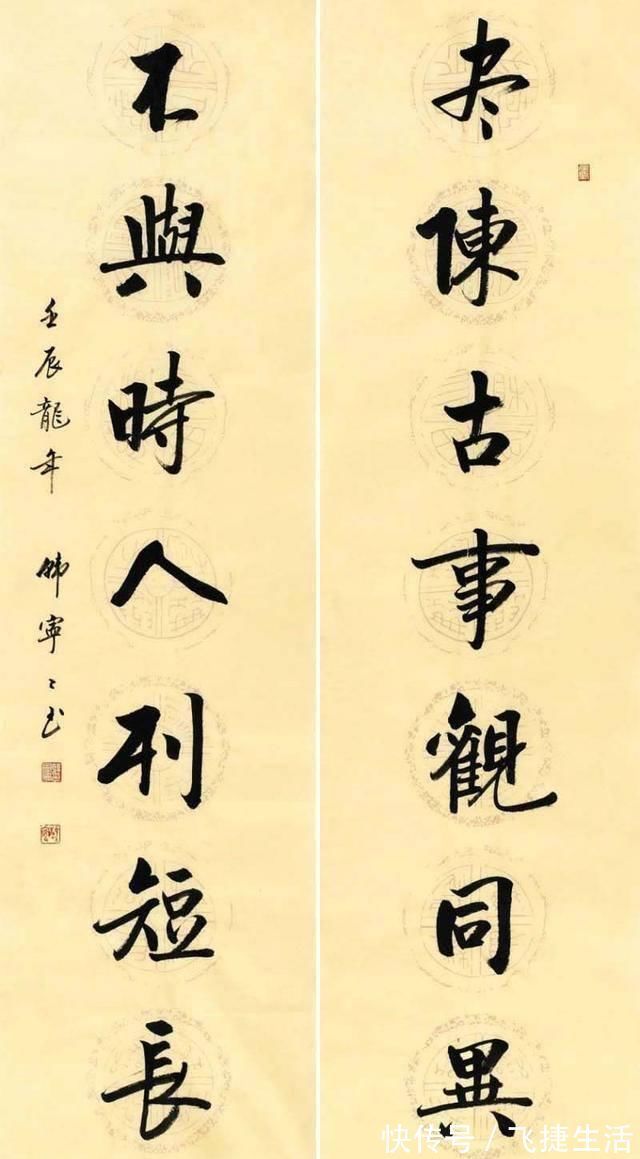 尽陳古事觀同異
不與時人刊短長
壬辰龍年 韩寧〻书
快传号 / 飞捷生活